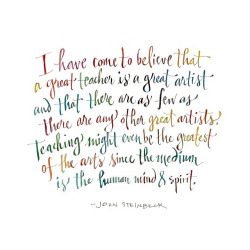 I have come to believe that
a great teacher is a great artist
and that there are as few as
there are any other great artists.
teaching might even be the greatest
of the arts since the medium
is the human mind & spirit.
-JOHN STEINBECK